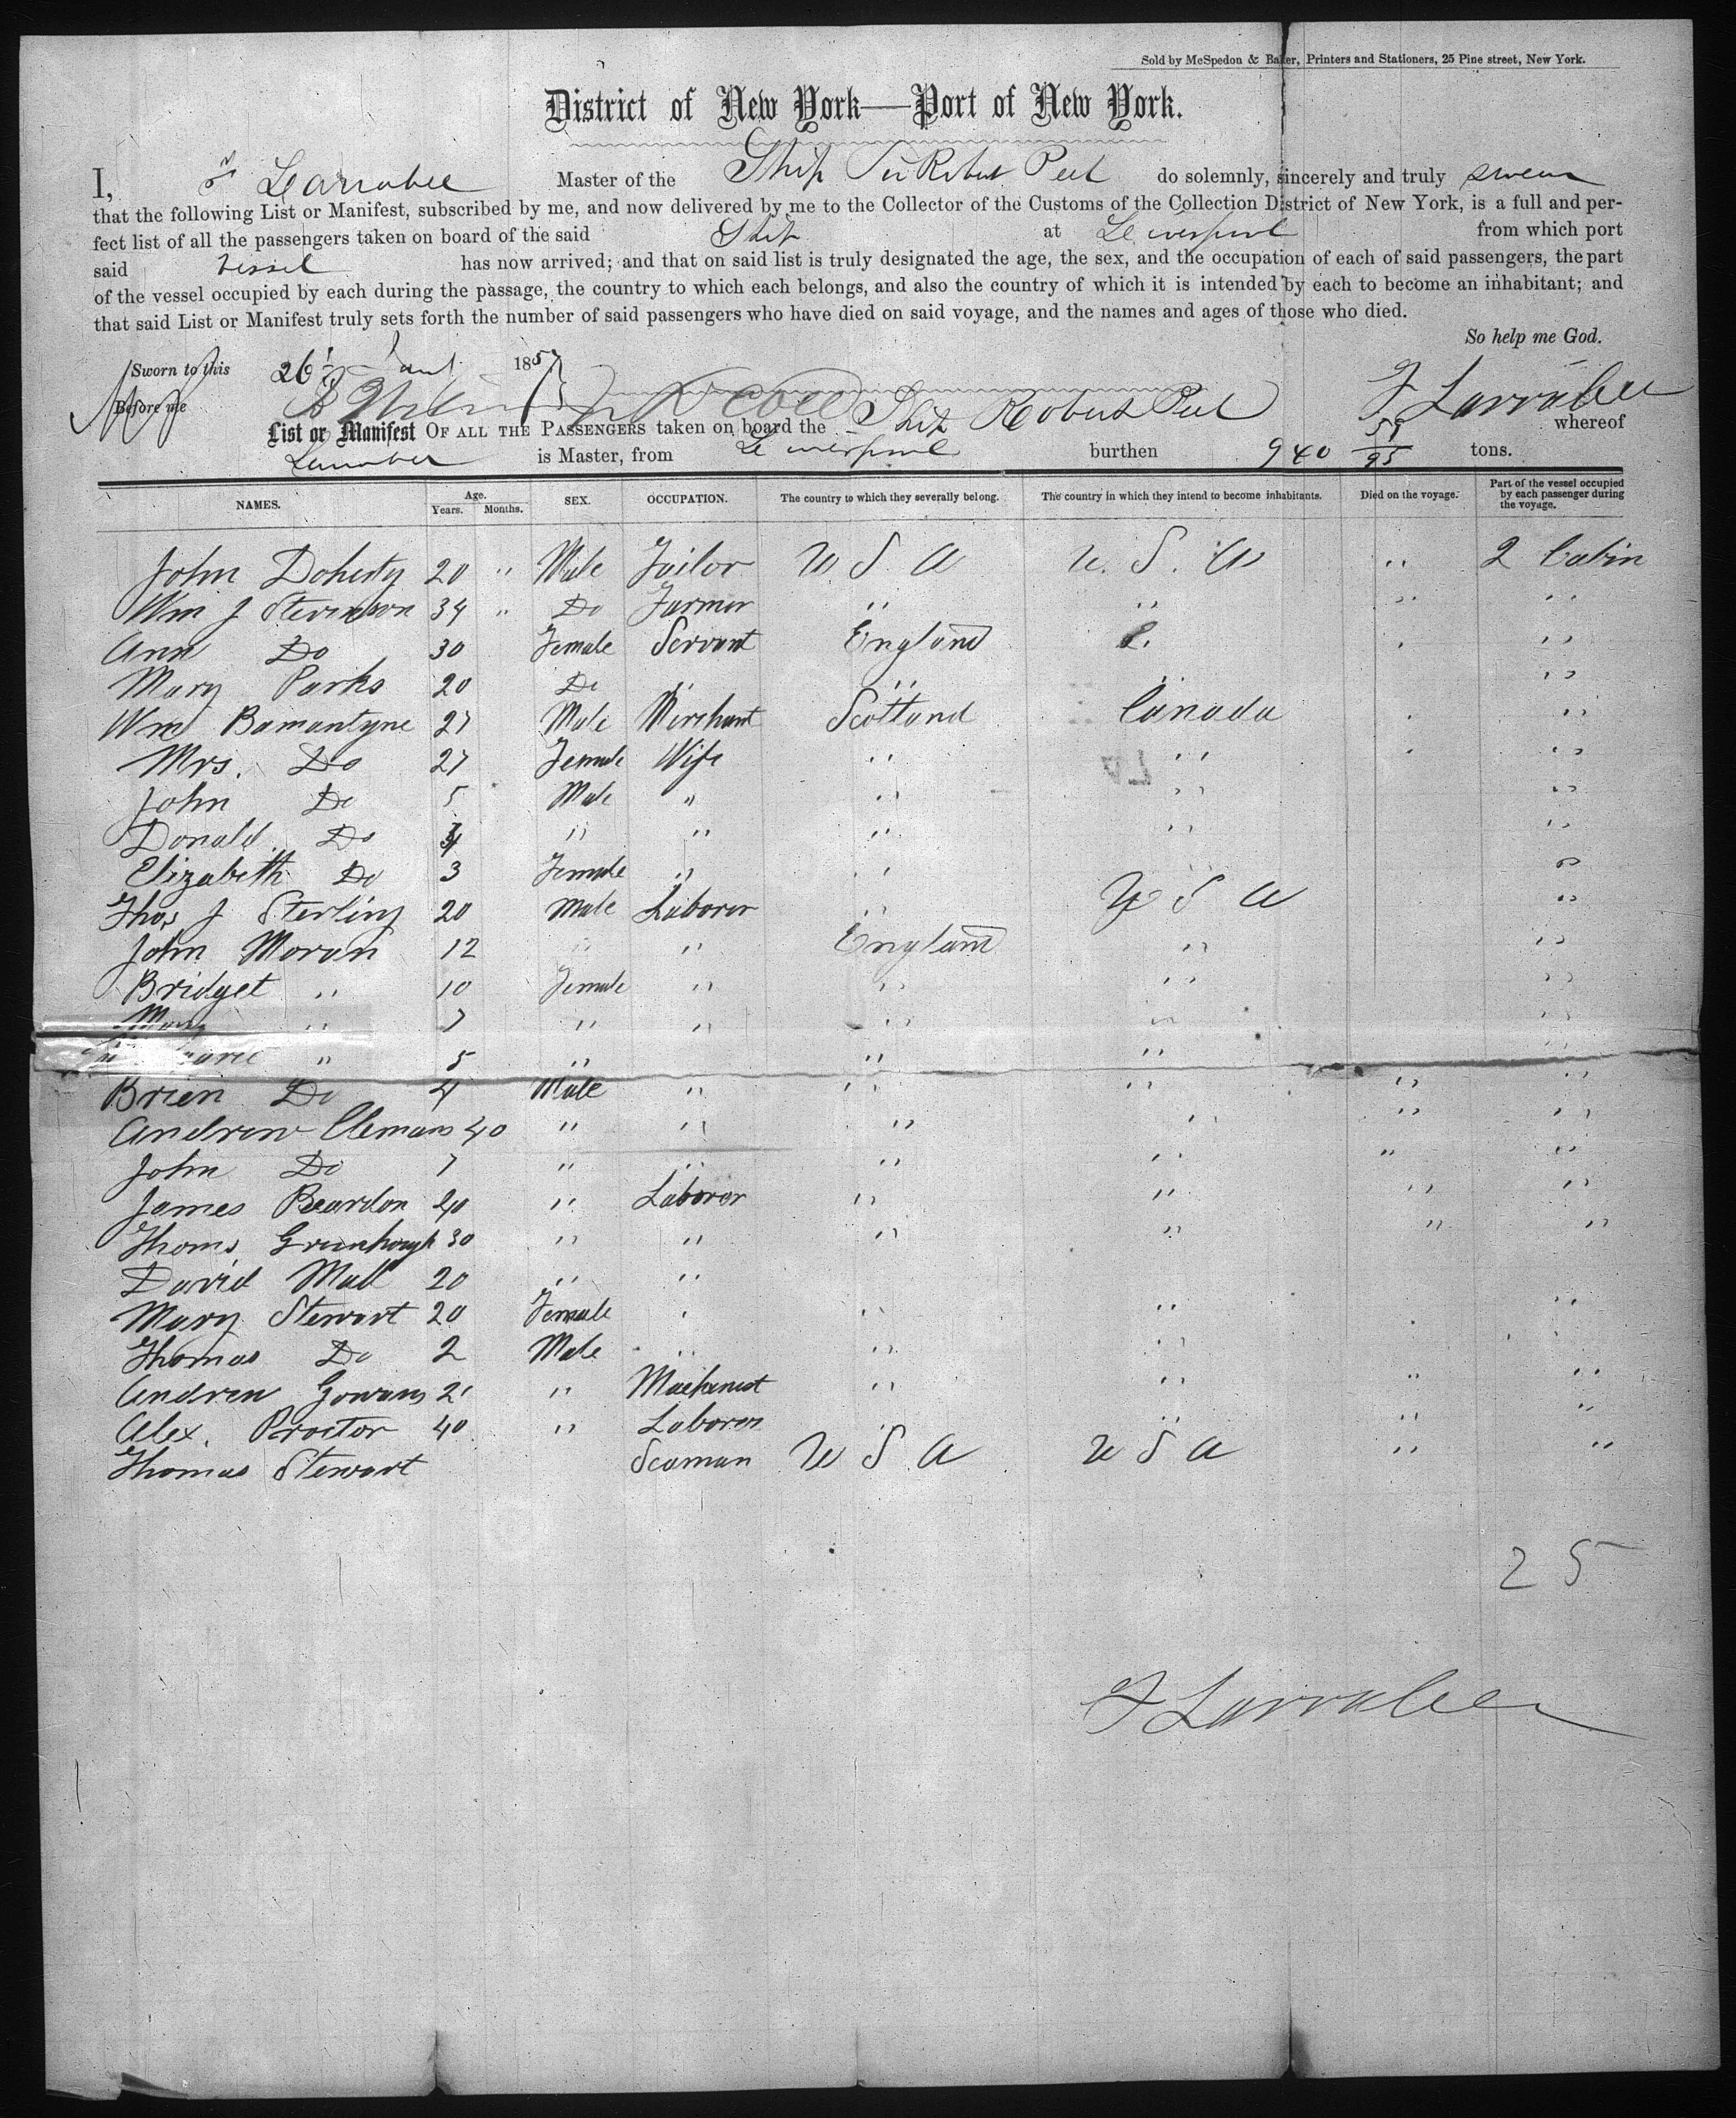 Sold by McSpedon & Baker, Printers and Stationers, 25 Pine street, New York.
District of New York—Port of New York.
I, F Learrabee Master of the Ship Sir Robert Peel do solemnly, sincerely and truly swear
that the following List or Manifest, subscribed by me, and now delivered by me to the Collector of the Customs of the Collection District of New York, is a full and per-
fect list of all the passengers taken on board of the said Ship at Leiverpool from which port
said vessel has now arrived; and that on said list is truly designated the age, the sex, and the occupation of each of said passengers, the part
of the vessel occupied by each during the passage, the country to which each belongs, and also the country of which it is intended by each to become an inhabitant; and
that said List or Manifest truly sets forth the number of said passengers who have died on said voyage, and the names and ages of those who died.
So help me God.
Sworn to this 26 1857
Before me F Larrabee
List or Manifest OF ALL THE PASSENGERS taken on board the Ship Robert Peel whereof
is Master, from Leiverpool burthen 940 51/95 tons.
NAMES. Age. Years. Months. SEX. OCCUPATION. The country to which they severally belong. The country in which they intend to become inhabitants. Died on the voyage. Part of the vessel occupied by each passenger during the voyage.
John Doherty 20 " Male Tailor U S A U. S. A " 2 Cabin
Wm J Stevenson 34 " Do Farmer " " " "
Ann Do 30 Female Servant England "
Mary Parks 20 Do " " " "
Wm Bamantyne 27 Male Merchant Scotland Canada "
Mrs. Do 27 Female Wife " " "
John Do 5 Male " " " "
Donald Do " " " " "
Elizabeth Do 3 Female " " "
Thos J Sterling 20 Male Laborer " U S A "
John Moran 12 " " England " "
Bridget " 10 Female " " " "
Mary " 7 " " " " "
" 5 " " " "
Brien Do 4 Male " " " " "
Andrew Clemans 40 " " " " " "
John Do 7 " " " " " "
James Reardon 20 " Laborer " " " "
Thoms Greenhough 30 " " " " " "
David Mall 20 " "
Mary Stewart 20 Female " " " "
Thomas Do 2 Male " " "
Andrew Gowans 21 " Machenist " " " "
Alex. Proctor 40 " Laborer " " " "
Thomas Stewart Seaman U S A U S A " "
25
F Larrabee